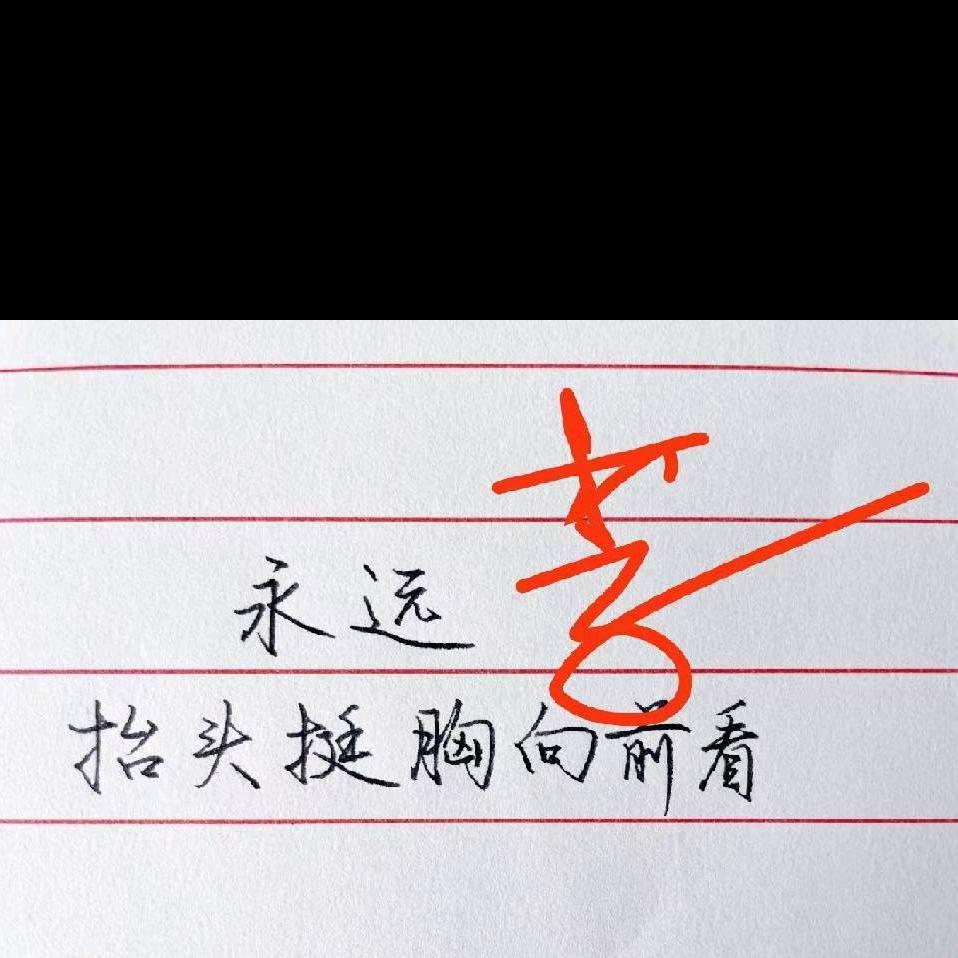 永远
抬头挺胸向前看